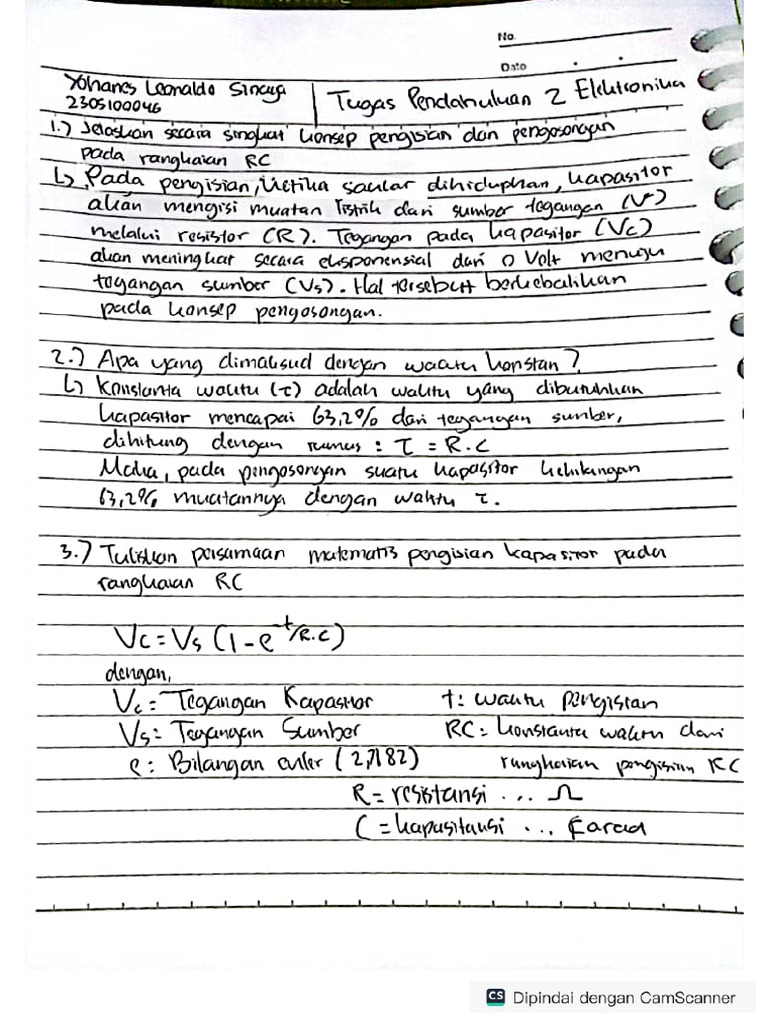 No.
Date
Yohanes Leonaldo Sinaga
2305100046
Tugas Pendahuluan 2 Elektronika
1.) Jelaskan secara singkat konsep pengisian dan pengosongan
pada rangkaian RC
↳ Pada pengisian, Ketika saklar dihidupkan, kapasitor
akan mengisi muatan listrik dari sumber tegangan (V)
melalui resistor (R). Tegangan pada kapasitor (Vc)
akan meningkat secara eksponensial dari 0 Volt menuju
tegangan sumber (Vs). Hal tersebut berkebalikan
pada konsep pengosongan.
2.) Apa yang dimaksud dengan waktu konstan?
↳ Konstanta waktu (τ) adalah waktu yang dibutuhkan
kapasitor mencapai 63,2% dari tegangan sumber,
dihitung dengan rumus : τ = R.C
Maka, pada pengosongan suatu kapasitor kehilangan
63,2% muatannya dengan waktu τ.
3.) Tuliskan persamaan matematis pengisian kapasitor pada
rangkaian RC
Vc = Vs (1 - e^-t/R.C)
dengan,
Vc = Tegangan Kapasitor t : waktu pengisian
Vs = Tegangan Sumber RC = konstanta waktu dari
e : Bilangan euler (2,7182) rangkaian pengisian RC
R = resistansi ... Ω
C = kapasitansi ... Farad
CS Dipindai dengan CamScanner